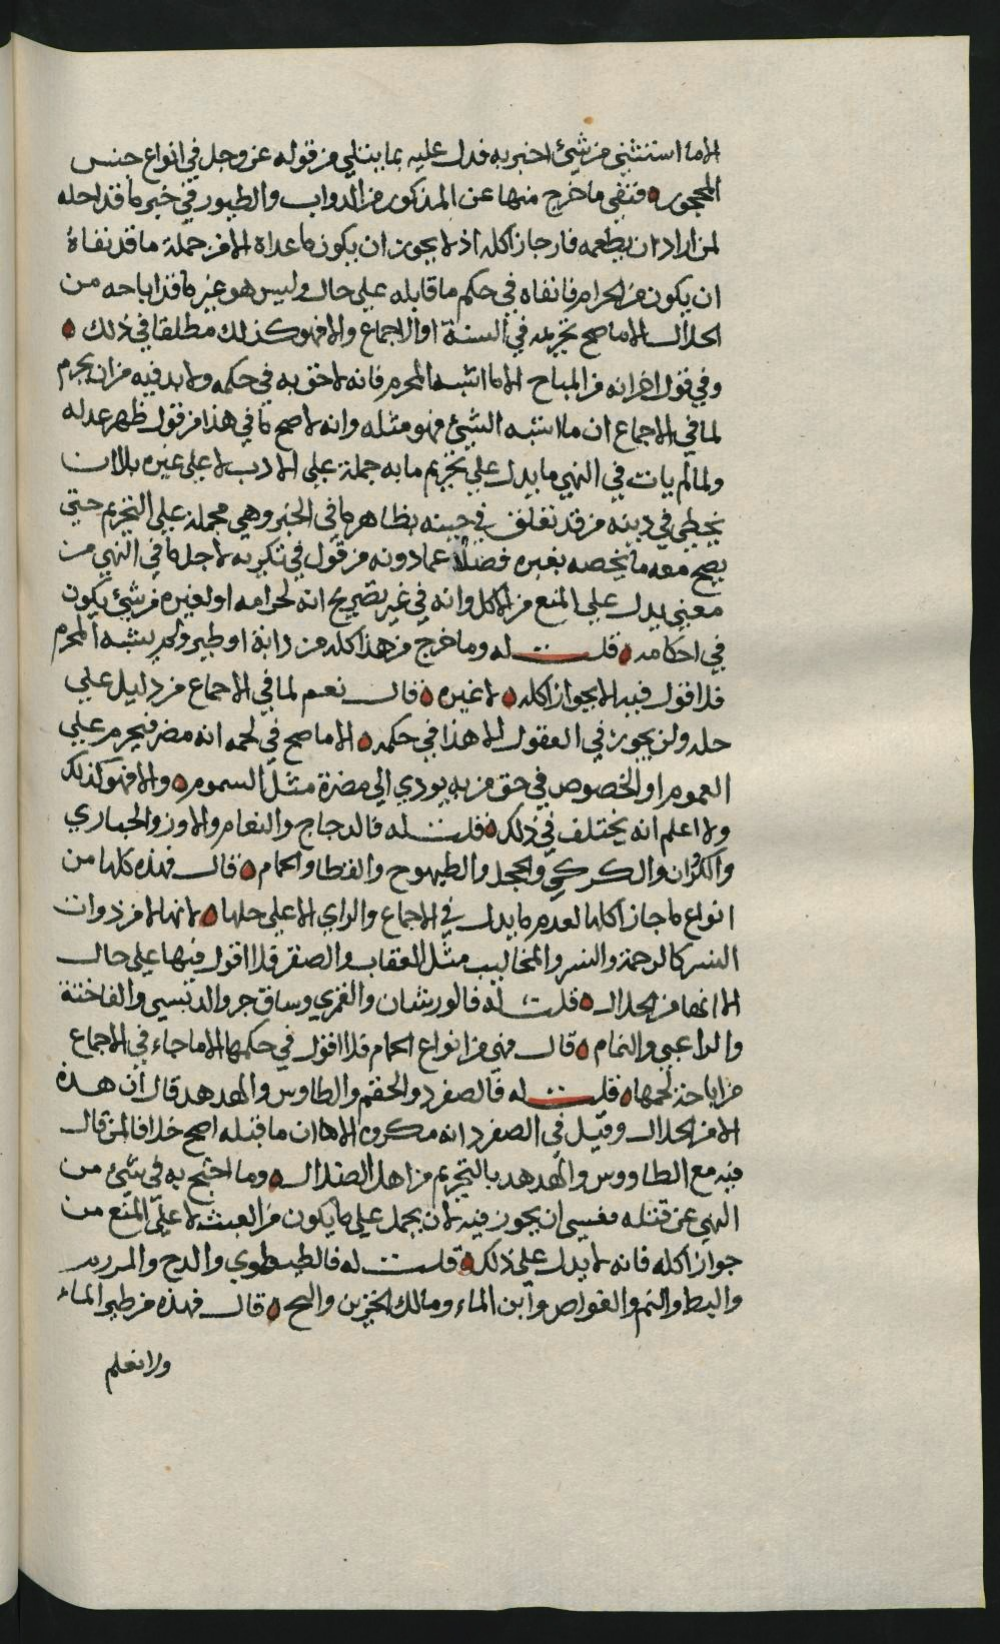 الا ما استثنى من شيء اخبر به فدل عليه بما يتلى من قوله عز وجل في انواع جنس
المحجور فنفى ما خرج منها عن المذكور من الدواب والطيور في خبر ما قد احله
لمن اراد ان يطعمه فان جاز اكله اذ لا يجوز ان يكون ما عداه الا من جملة ما قد نفاه
ان يكون من الحرام فانفاه في حكم ما قابله على حال وليس هو غير ما قد اباحه من
الحلال الا ما صح تحريمه في السنة او الاجماع والا فهو كذلك مطلقا في ذلك
وفي قول اخر انه من المباح الا ما اشبه المحرم فانه لاحق به في حكمه ولا بد فيه من ان يحرم
لما في الاجماع ان ما اشبه الشيء فهو مثله وانه لاصح ما في هذا من قول ظهر عدله
ولما لم يات في النهي ما يدل على تحريم ما به جملة على الادب لا على غيره بلا ان
يخطي في دينه من قد تعلق في حينه بظاهر ما في الخبر وهي محملة على التحريم حتى
يصح معه ما يخصه بغيره فضلا عما دونه من قول في تكريه لاجل ما في النهي من
معنى يدل على المنع من الاكل وانه في غير تصريح انه لحرامه او لغيره من شيء يكون
في احكامه قلت له وما خرج من هذا كله من دابة او طير ولم يشبه المحرم
فلا قول فيه الا بجواز اكله لا غيره قال نعم لما في الاجماع من دليل على
حله ولن يجوز في العقول الا هذا في حكمه الا ما صح في لحمه انه مضر فيحرم على
العموم او الخصوص في حق من به يودي الى مضرة مثل السموم والا فهو كذلك
ولا اعلم انه يختلف في ذلك قلت له فالدجاج والنعام والاوز والحباري
والكروان والكركي والحجل والطيهوج والقطا والحمام قال فهذه كلها من
انواع ما جاز اكلها لعدم ما يدل في الاجماع والراي الا على حلها لانها لا من ذوات
النسر كالرحمة والنسر والمخاليب مثل العقاب والصقر فلا اقول فيها على حال
الا انها من الحلال قلت له فالورشان والقمري وساق حر والدبسي والفاختة
والراعبي والتمام قال فهي من انواع الحمام فلا اقول في حكمها الا ما جاء في الاجماع
من اباحة لحمها قلت له فالصفرد والحقم والطاوس والهدهد قال ان هذه
الا من الحلال وقيل في الصفرد انه مكروه الا ان ما قبله اصح خلافا لمن قال
فيه مع الطاووس والهدهد بالتحريم من اهل الضلال وما احتج به في شيء من
النهي عن قتله فعسى ان يجوز فيه لان يحمل على ما يكون من العبث لا على المنع من
جواز اكله فانه لا يدل على ذلك قلت له فالطيطوي والدح
والبط والتم والغواص وابن الماء ومالك الحزين قال فهذه من طير الماء
ولا نعلم